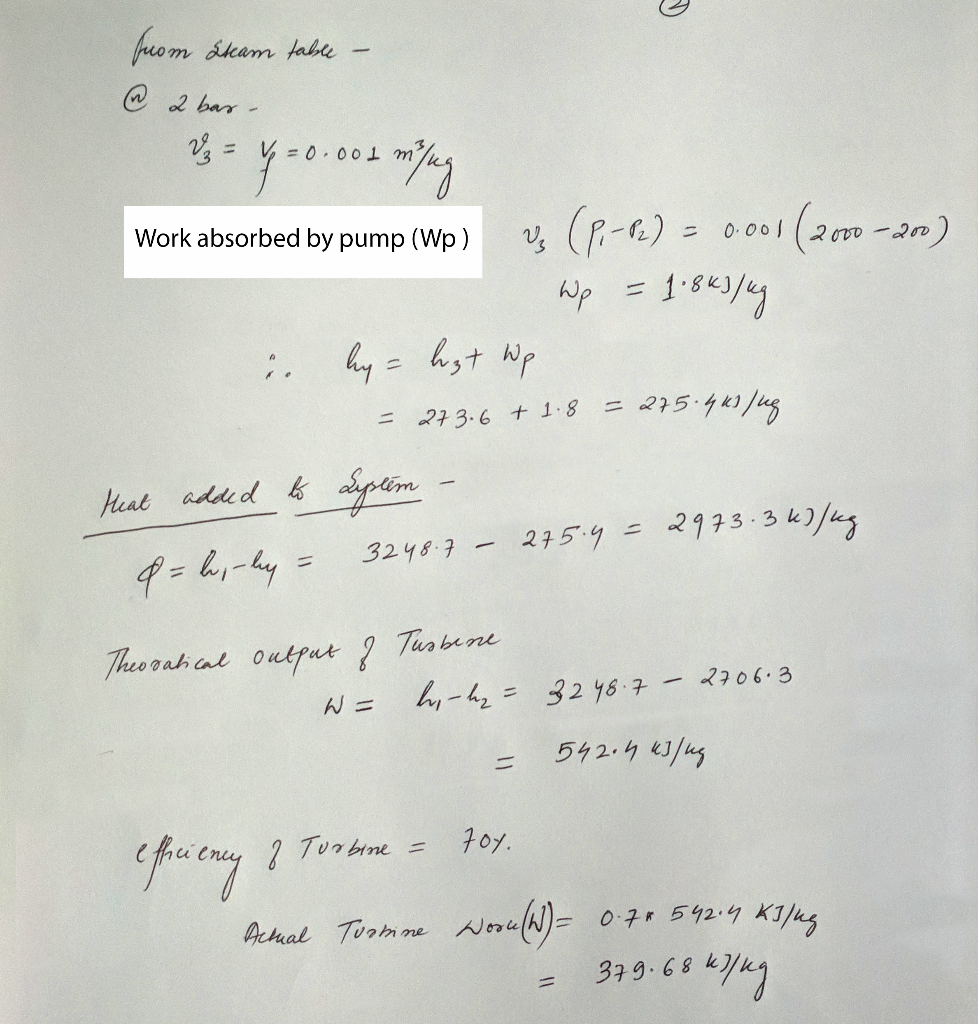 ②
from steam table -
@ 2 bar -
v₃ = v_f = 0.001 m³/kg
Work absorbed by pump (Wp) v₃ (P₁-P₂) = 0.001 (2000 - 200)
Wp = 1.8 kJ/kg
∴ h₄ = h₃ + Wp
= 273.6 + 1.8 = 275.4 kJ/kg
Heat added to System -
φ = h₁-h₄ = 3248.7 - 275.4 = 2973.3 kJ/kg
Theoratical output of Turbine
W = h₁-h₂ = 3248.7 - 2706.3
= 542.4 kJ/kg
efficiency of Turbine = 70%.
Actual Turbine Work(W) = 0.7 * 542.4 KJ/kg
= 379.68 kJ/kg